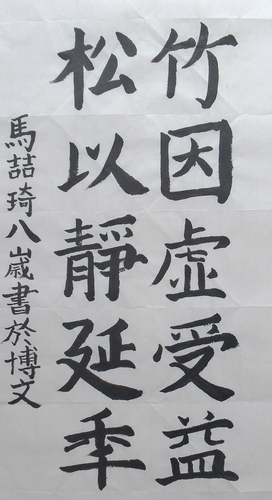 竹因虛受益
松以靜延年
馬喆琦八歲書於博文